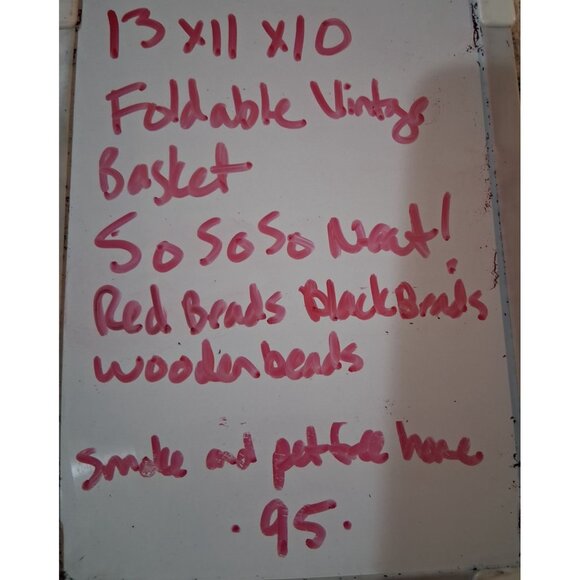 13 x 11 x 10
Foldable Vintage
Basket
So So So Neat!
Red Beads Black Beads
wooden beads
smoke and pet free home
. 95 .